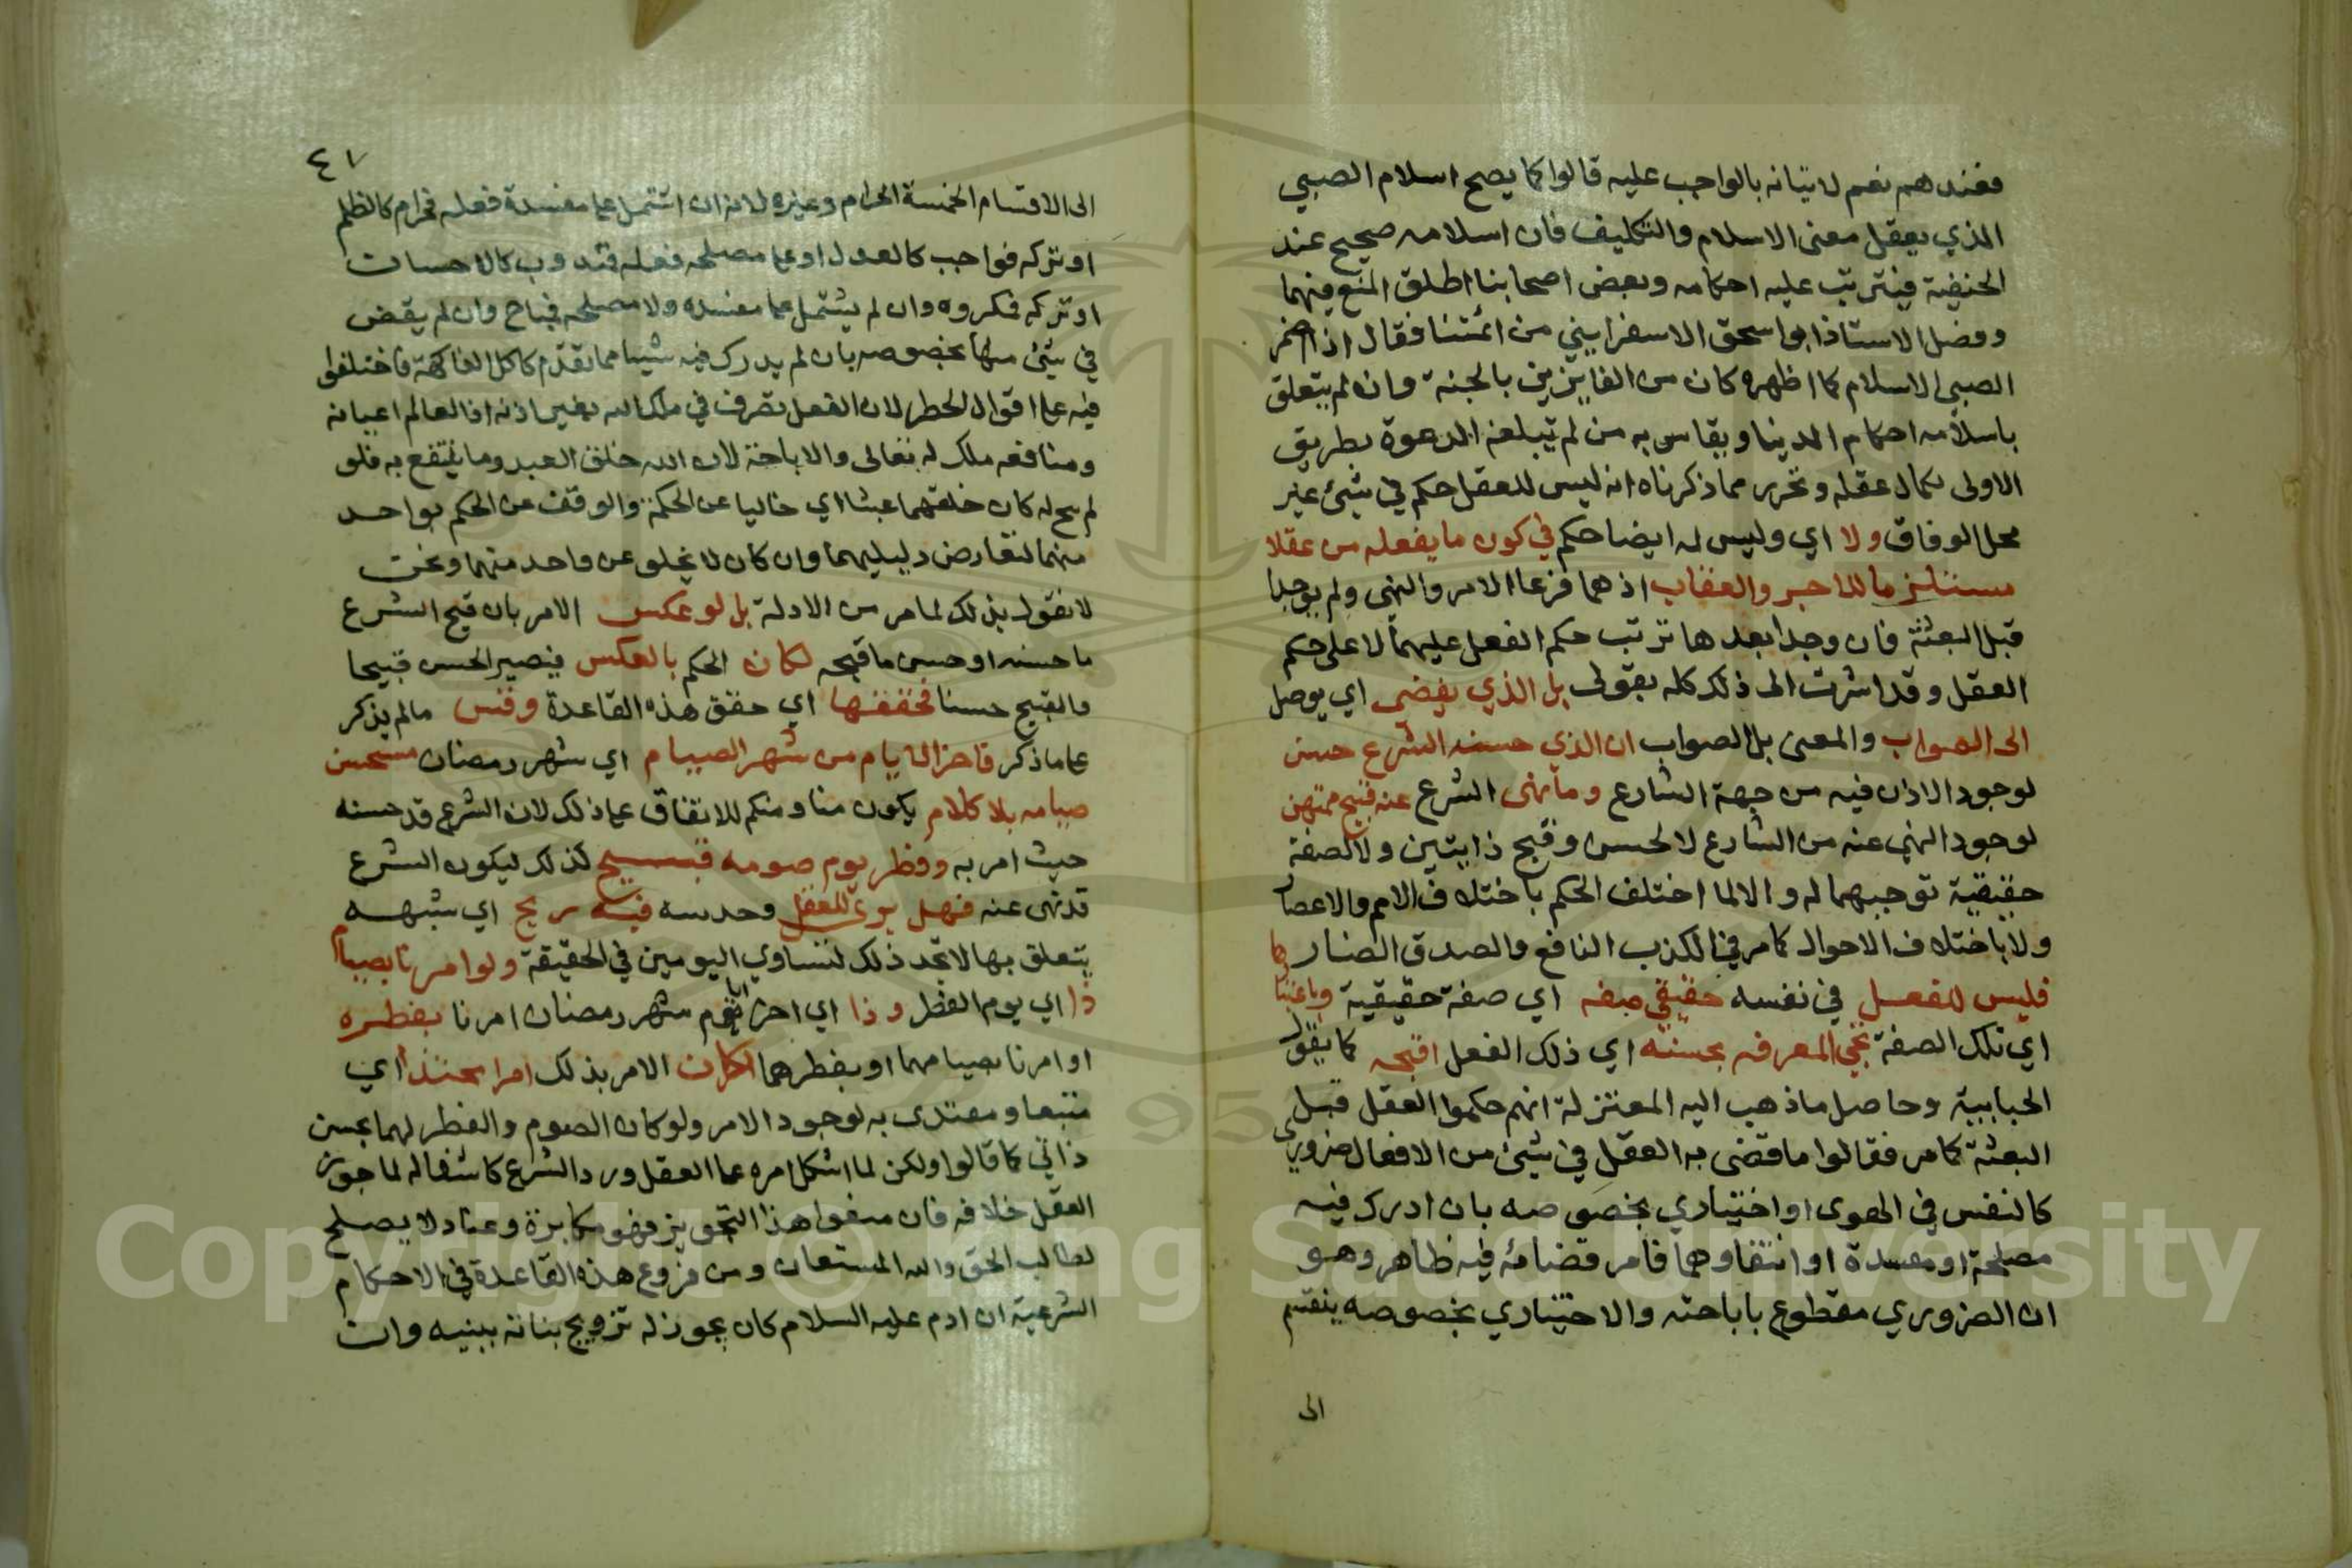 فعندهم نعم لاتيانه بالواجب عليه قالوا كما يصح اسلام الصبي
الذي يعقل معنى الاسلام والتكليف فان اسلامه صحيح عند
الحنفية فيترتب عليه احكامه وبعض اصحابنا اطلق المنع فيهما
وفضل الاستاذ ابو اسحق الاسفراييني من ائمتنا فقال اذا اضمر
الصبي الاسلام كما اظهره كان من الفايزين بالجنة وان لم يتعلق
باسلامه احكام الدنيا ويقاس به من لم تبلغه الدعوة بطريق
الاولى لكمال عقله وتحرر مما ذكرناه انه ليس للعقل حكم في شيئ غير
محل الوفاق ولا اي وليس له ايضا حكم في كون ما يفعله من عقلا
مستلزما للاجر والعقاب اذ هما فرعا الامر والنهي ولم يوجدا
قبل البعثة فان وجدا بعدها ترتب حكم الفعل عليهما لا على حكم
العقل وقد اشرت الى ذلك كله بقولي بل الذي يفضي اي يوصل
الى الصواب والمعنى بل الصواب ان الذي حسنه الشرع حسن
لوجود الاذن فيه من جهة الشارع وما نهى الشرع عنه قبيح ممتهن
لوجود النهي عنه من الشارع لا لحسن وقبح ذاتيين ولا لصفة
حقيقية توجبهما له والا لما اختلف الحكم باختلاف الامم والاعصار
ولا باختلاف الاحوال كما مر في الكذب النافع والصدق الضار كما
فليس للفعل في نفسه حقيقي صفه اي صفة حقيقية وباعتبا
اي تلك الصفة تجي المعرفه بحسنه اي ذلك الفعل اقبحه كما يقول
الجبايية وحاصل ما ذهب اليه المعتزلة انهم حكموا العقل قبل
البعثة كما مر فقالوا ما قضى به العقل في شيئ من الافعال ضروري
كالنفس في الهوى او اختياري بخصوصه بان ادرك فيه
مصلحة او مفسدة او انتفاوهما فامر قضائه فيه ظاهر وهو
ان الضروري مقطوع باباحته والاختياري بخصوصه ينقسم
الى
٤٧
الى الاقسام الخمسة الحرام وغيره لانه ان اشتمل على مفسدة فعله فحرام كالظلم
او تركه فواجب كالعدل او على مصلحه فعله فندوب كالاحسان
او تركه فمكروه وان لم يشتمل على مفسده ولا مصلحه فمباح وان لم يقض
في شيئ منها بخصوصه بان لم يدرك فيه شيا مما تقدم كاكل الفاكهة فاختلفوا
فيه على اقوال الحظر لان الفعل تصرف في ملك الله بغير اذنه اذ العالم اعيانه
ومنافعه ملك له تعالى والاباحة لان الله خلق العبد وما ينتفع به فلو
لم يبح له كان خلقهما عبثا اي خاليا عن الحكمة والوقف عن الحكم بواحد
منهما لتعارض دليليهما وان كان لا يخلو عن واحد منهما ونحن
لا نقول بذلك لما مر من الادلة بل لو عكس الامر بان قبح الشرع
ما حسنه او حسن ما قبحه لكان الحكم بالعكس فيصير الحسن قبيحا
والقبيح حسنا فحققنها اي حقق هذه القاعدة وقس مالم يذكر
على ما ذكر فاخر الايام من شهر الصيام اي شهر رمضان مستحسن
صيامه بلا كلام يكون منا ومنكم للاتفاق على ذلك لان الشرع قد حسنه
حيث امر به وفطر يوم صومه قبيح كذلك ليكون الشرع
قد نهى عنه فهل يرى للعقل وحدسه فيه ريح اي شبهه
يتعلق بها لا تجد ذلك لتساوي اليومين في الحقيقة ولو امرنا بصيام
ذا اي يوم الفطر وذا اي اخر ايام شهر رمضان امرنا بفطره
او امرنا بصيامهما او بفطرهما لكان الامر بذلك امرا يحتذا اي
متبعا ومقتدى به لوجود الامر ولو كان الصوم والفطر لهما بحسن
ذاتي كما قالوا ولكن لما اشكل امره على العقل ورد الشرع كاشفا له لما جوز
العقل خلافه فان منعوا هذا التجويز فهو مكابرة وعناد لا يصلح
لطالب الحق والله المستعان ومن فروع هذه القاعدة في الاحكام
الشرعية ان ادم عليه السلام كان يجوز له تزويج بناته ببنيه وان
Copyright © King Saud University